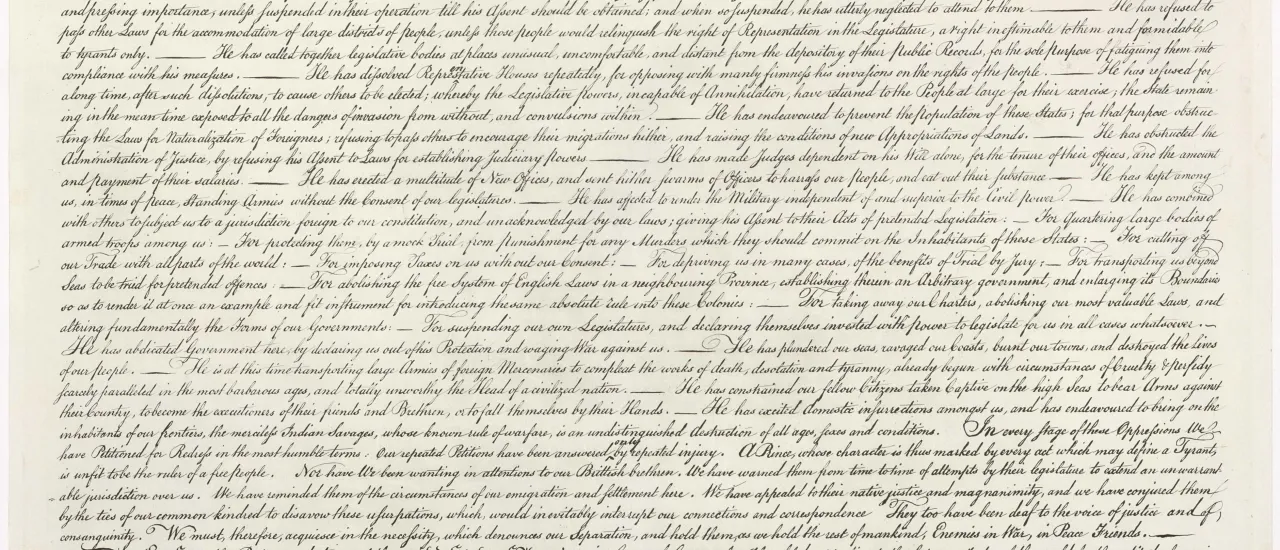 and pressing importance, unless suspended in their operation till his Assent should be obtained; and when so suspended, he has utterly neglected to attend to them. —— He has refused to
pass other Laws for the accommodation of large districts of people, unless those people would relinquish the right of Representation in the Legislature, a right inestimable to them and formidable
to tyrants only. —— He has called together legislative bodies at places unusual, uncomfortable, and distant from the depository of their Public Records, for the sole purpose of fatiguing them into
compliance with his measures. —— He has dissolved Representative Houses repeatedly, for opposing with manly firmness his invasions on the rights of the people. —— He has refused for
a long time, after such dissolutions, to cause others to be elected; whereby the Legislative powers, incapable of Annihilation, have returned to the People at large for their exercise; the State remain
ing in the mean time exposed to all the dangers of invasion from without, and convulsions within. —— He has endeavoured to prevent the population of these States; for that purpose obstruc
ting the Laws for Naturalization of Foreigners; refusing to pass others to encourage their migrations hither, and raising the conditions of new Appropriations of Lands. —— He has obstructed the
Administration of Justice, by refusing his Assent to Laws for establishing Judiciary powers. —— He has made Judges dependent on his Will alone, for the tenure of their offices, and the amount
and payment of their salaries. —— He has erected a multitude of New Offices, and sent hither swarms of Officers to harrass our people, and eat out their substance. —— He has kept among
us, in times of peace, Standing Armies without the Consent of our legislatures. —— He has affected to render the Military independent of and superior to the Civil power. —— He has combined
with others to subject us to a jurisdiction foreign to our constitution, and unacknowledged by our laws; giving his Assent to their Acts of pretended Legislation: — For Quartering large bodies of
armed troops among us: — For protecting them, by a mock Trial, from punishment for any Murders which they should commit on the Inhabitants of these States: — For cutting off
our Trade with all parts of the world: — For imposing Taxes on us without our Consent: — For depriving us in many cases, of the benefits of Trial by Jury: — For transporting us beyond
Seas to be tried for pretended offences — For abolishing the free System of English Laws in a neighbouring Province, establishing therein an Arbitrary government, and enlarging its Boundaries
so as to render it at once an example and fit instrument for introducing the same absolute rule into these Colonies: — For taking away our Charters, abolishing our most valuable Laws, and
altering fundamentally the Forms of our Governments: — For suspending our own Legislatures, and declaring themselves invested with power to legislate for us in all cases whatsoever. —
He has abdicated Government here, by declaring us out of his Protection and waging War against us. —— He has plundered our seas, ravaged our Coasts, burnt our towns, and destroyed the lives
of our people. — He is at this time transporting large Armies of foreign Mercenaries to compleat the works of death, desolation and tyranny, already begun with circumstances of Cruelty & perfidy
scarcely paralleled in the most barbarous ages, and totally unworthy the Head of a civilized nation. —— He has constrained our fellow Citizens taken Captive on the high Seas to bear Arms against
their Country, to become the executioners of their friends and Brethren, or to fall themselves by their Hands. — He has excited domestic insurrections amongst us, and has endeavoured to bring on the
inhabitants of our frontiers, the merciless Indian Savages, whose known rule of warfare, is an undistinguished destruction of all ages, sexes and conditions. In every stage of these Oppressions We
have Petitioned for Redress in the most humble terms: Our repeated Petitions have been answered only by repeated injury. A Prince, whose character is thus marked by every act which may define a Tyrant,
is unfit to be the ruler of a free people. Nor have We been wanting in attentions to our Brittish brethren. We have warned them from time to time of attempts by their legislature to extend an unwarrant
able jurisdiction over us. We have reminded them of the circumstances of our emigration and settlement here. We have appealed to their native justice and magnanimity, and we have conjured them
by the ties of our common kindred to disavow these usurpations, which, would inevitably interrupt our connections and correspondence They too have been deaf to the voice of justice and of
consanguinity. We must, therefore, acquiesce in the necessity, which denounces our Separation, and hold them, as we hold the rest of mankind, Enemies in War, in Peace Friends. —